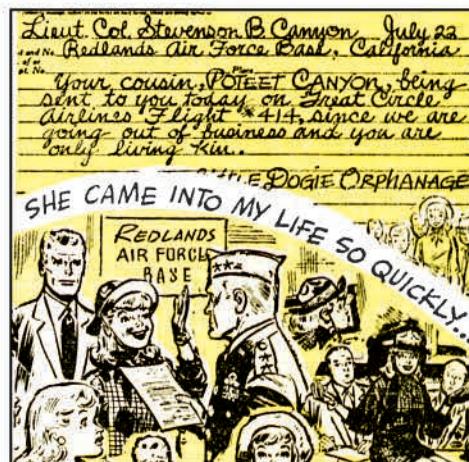 Lieut. Col. Stevenson B. Canyon July 22
Redlands Air Force Base, California
Your cousin, POTEET CANYON, being
sent to you today on Great Circle
Airlines Flight #414, since we are
going out of business and you are
only living kin.
DOGIE ORPHANAGE
SHE CAME INTO MY LIFE SO QUICKLY...
REDLANDS
AIR FORCE
BASE